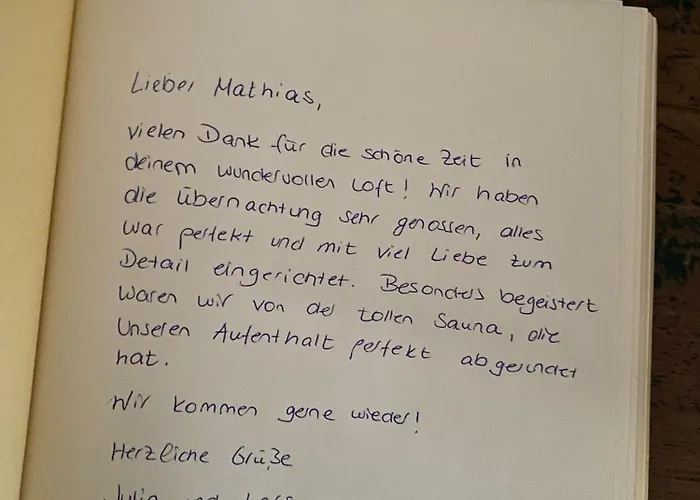 Lieber Mathias,
vielen Dank für die schöne Zeit in
deinem wundervollen Loft! Wir haben
die Übernachtung sehr genossen, alles
war perfekt und mit viel Liebe zum
Detail eingerichtet. Besonders begeistert
waren wir von der tollen Sauna, die
unseren Aufenthalt perfekt abgerundet
hat.
Wir kommen gerne wieder!
Herzliche Grüße